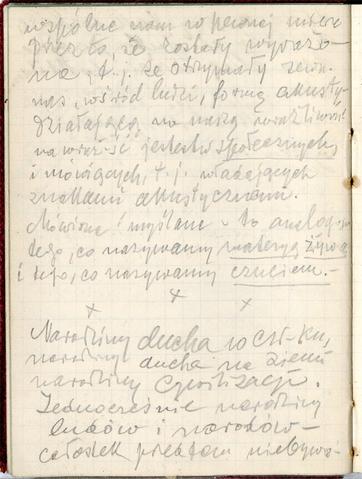 wspólne nam w pewnej mierze
przez to, że zostały wyrażo-
na, t. j. że otrzymały zewn.
nas, wśród ludzi, formę akusty.
działającą na naszą wrażliwość
na wraż-ść jestestw społecznych,
i mówiących, t. j. władających
znakami akustycznemi.
Mówione i myślane - to analog.
tego, co nazywamy materyą żywą
i tego, co nazywamy czuciem. -
x x x
Narodziny ducha w czł-ku,
narodziny ducha na ziemi
narodziny cywilizacji.
Jednocześnie narodziny
ludów i narodów -
całostek przedtem niebywa-